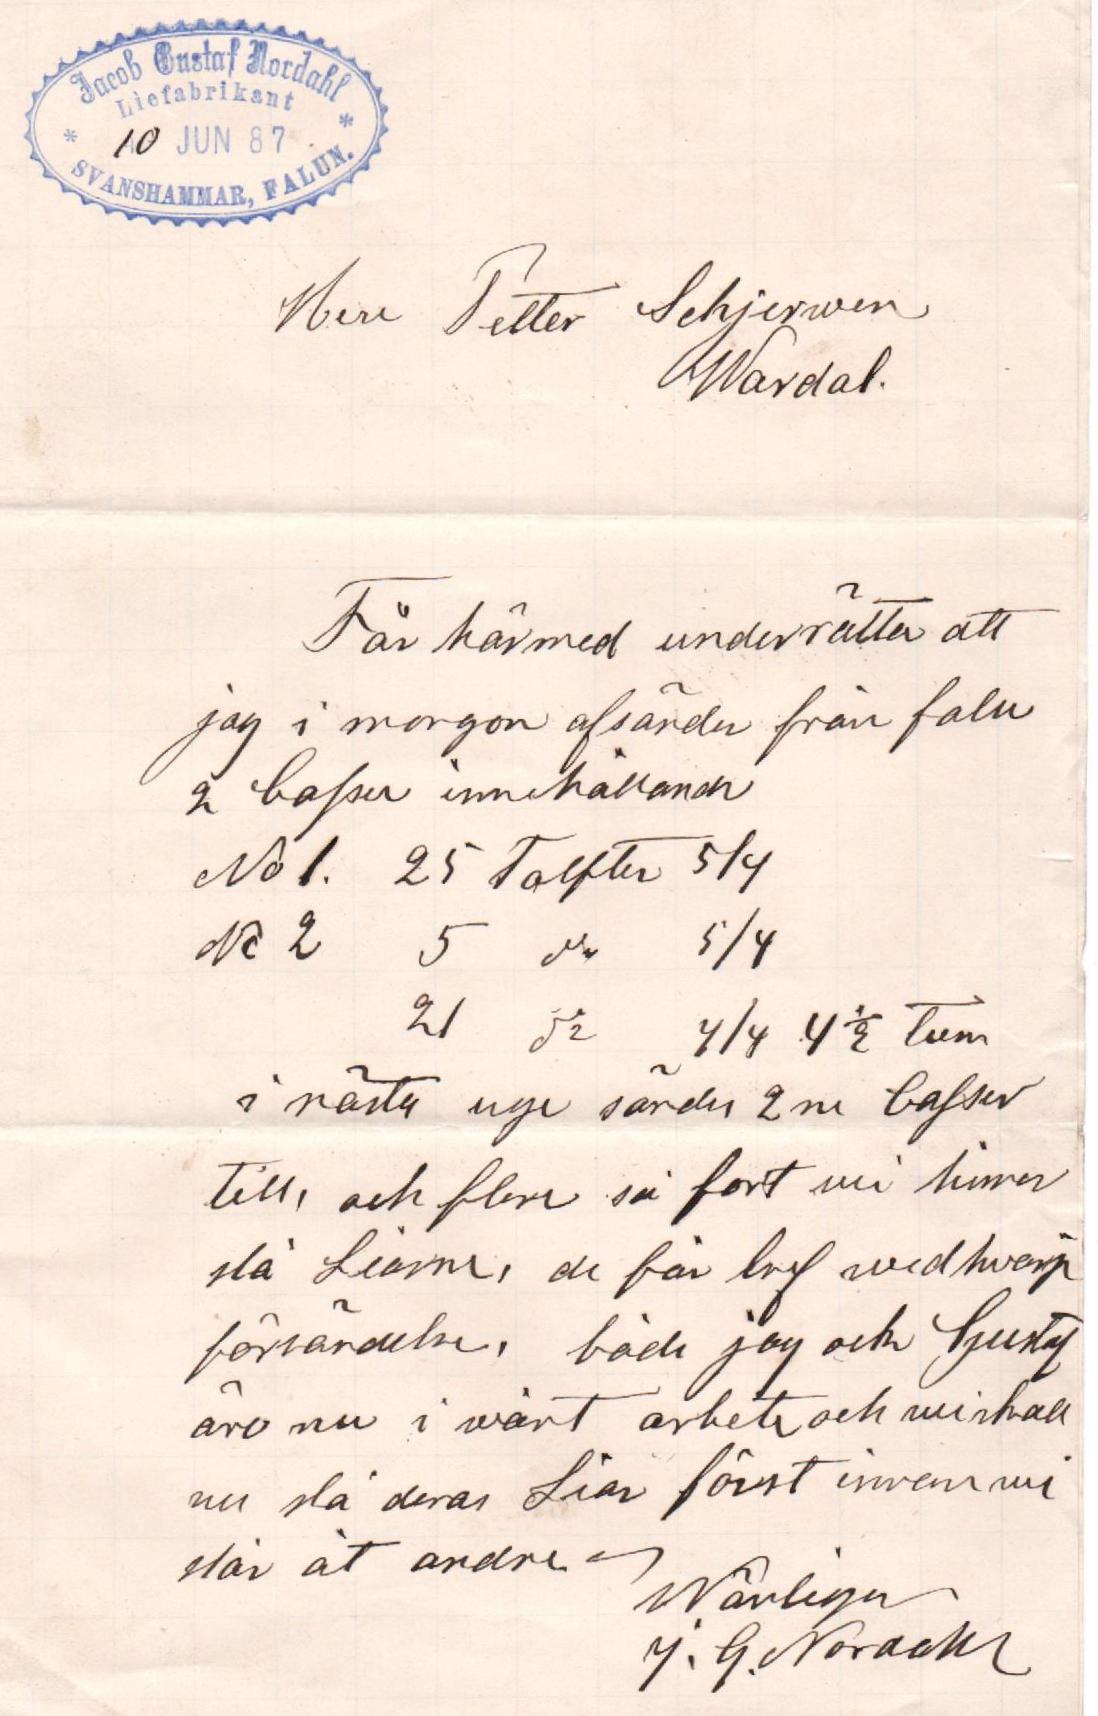 Jacob Gustaf Nordahl
Liefabrikant
* 10 JUN 87 *
SVANSHAMMAR, FALUN.
Herr Petter Schjerwen
Wardal.
Får härmed underrätta att
jag i morgon afsänder från falu
2 Casser innehållande
No 1. 25 Tolfter 5/4
No 2 5 do 5/4
21 do 4/4 4 1/2 tum
i nästa uge sändes 2ne Casser
till, och flere så fort vi hinner
slå Liarne, de får bref wed hwarje
försändelse, både jag och Gustaf
äro nu i wårt arbete och wi skall
nu slå deras Liar först innan wi
slår åt andre
Wänligen
J. G. Nordahl